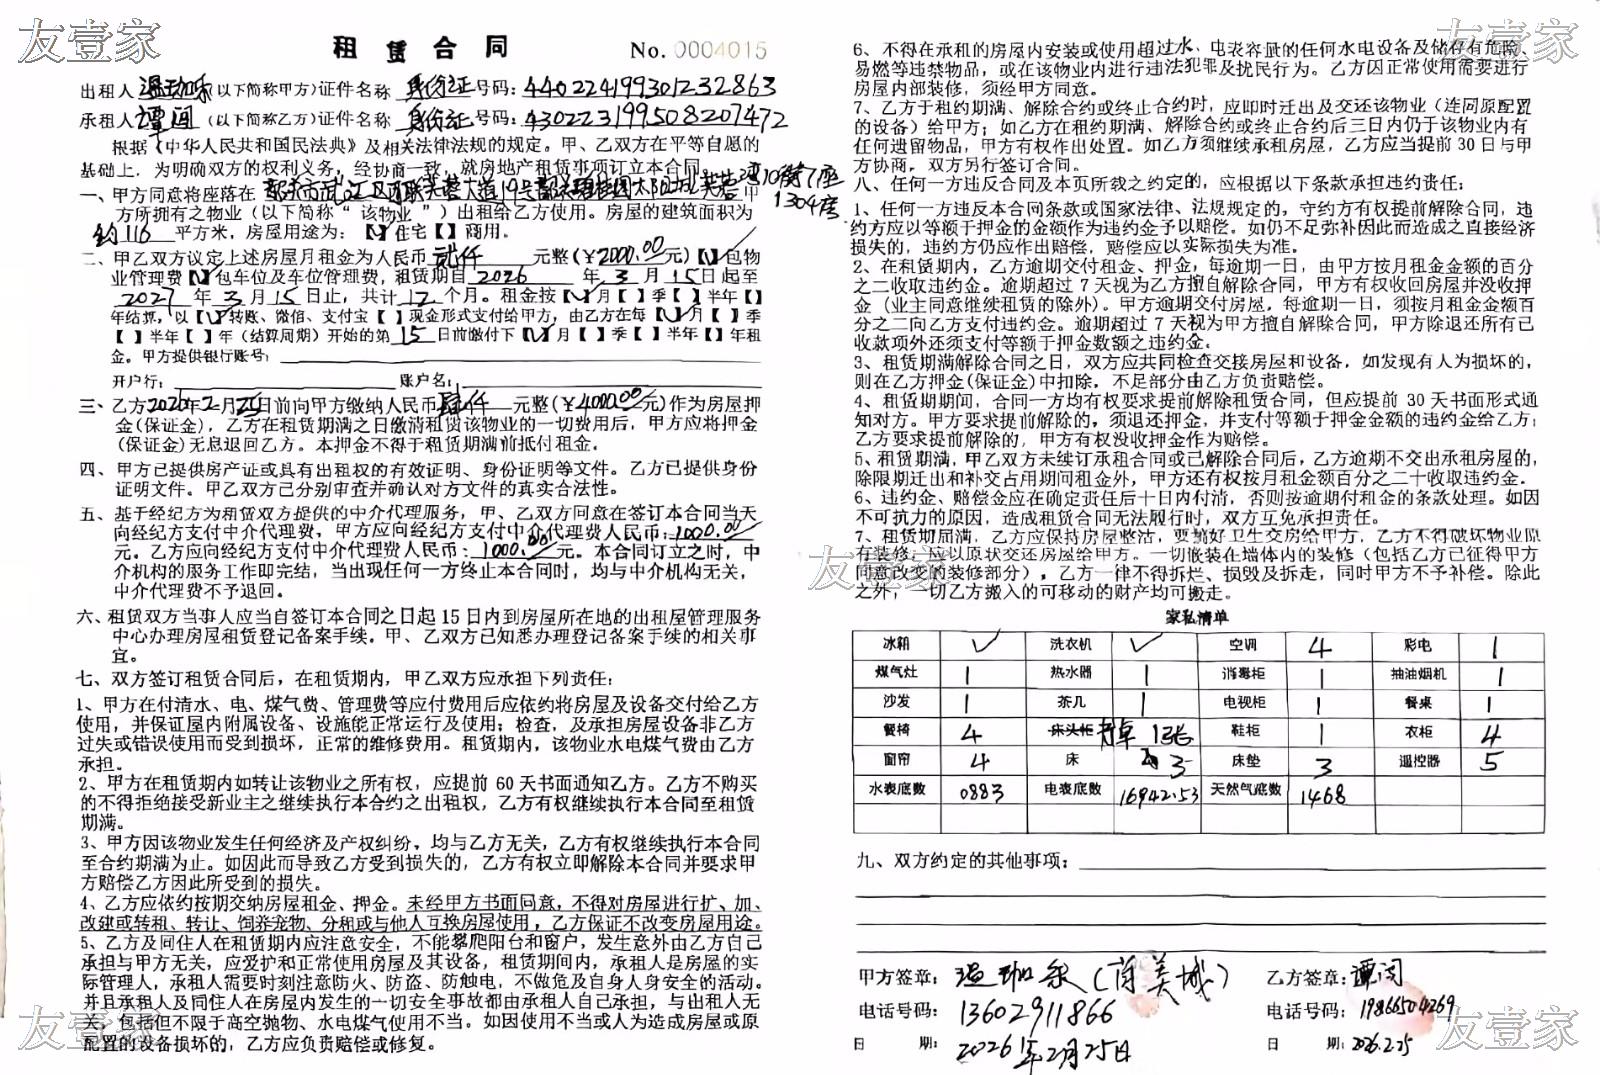 友壹家
友壹家
租赁合同 No. 0004015
出租人温珈乐(以下简称甲方)证件名称 身份证号码:440224199301232863
承租人谭闯(以下简称乙方)证件名称 身份证号码:430223199508207472
根据《中华人民共和国民法典》及相关法律法规的规定。甲、乙双方在平等自愿的
基础上,为明确双方的权利义务,经协商一致,就房地产租赁事项订立本合同。
一、甲方同意将座落在 韶关市武江区西联芙蓉大道19号韶关碧桂园太阳城芙蓉 10街7座 甲
1304房
方所拥有之物业(以下简称“该物业”)出租给乙方使用。房屋的建筑面积为
约116 平方米,房屋用途为:【✓】住宅【 】商用。
二、甲乙双方议定上述房屋月租金为人民币 贰仟 元整(¥2000.00元)【✓】包物
业管理费【✓】包车位及车位管理费,租赁期自 2026 年 3 月 15日起至
2027 年 3 月 15日止,共计 12 个月。租金按【✓】月【 】季【 】半年【 】
年结算,以【✓】转账、微信、支付宝【 】现金形式支付给甲方,由乙方在每【✓】月【 】季
【 】半年【 】年(结算周期)开始的第 15 日前缴付下【✓】月【 】季【 】半年【 】年租
金。甲方提供银行账号:
开户行: 账户名:
三、乙方2026年2月25日前向甲方缴纳人民币肆仟 元整(¥4000.00元)作为房屋押
金(保证金),乙方在租赁期满之日缴清租赁该物业的一切费用后,甲方应将押金
(保证金)无息退回乙方。本押金不得于租赁期满前抵付租金。
四、甲方已提供房产证或具有出租权的有效证明、身份证明等文件。乙方已提供身份
证明文件。甲乙双方已分别审查并确认对方文件的真实合法性。
五、基于经纪方为租赁双方提供的中介代理服务,甲、乙双方同意在签订本合同当天
向经纪方支付中介代理费,甲方应向经纪方支付中介代理费人民币:1000.00
元。乙方应向经纪方支付中介代理费人民币:1000.00元。本合同订立之时,中
介机构的服务工作即完结,当出现任何一方终止本合同时,均与中介机构无关,
中介代理费不予退回。
六、租赁双方当事人应当自签订本合同之日起 15 日内到房屋所在地的出租屋管理服务
中心办理房屋租赁登记备案手续。甲、乙双方已知悉办理登记备案手续的相关事
宜。
七、双方签订租赁合同后,在租赁期内,甲乙双方应承担下列责任:
1、甲方在付清水、电、煤气费、管理费等应付费用后应依约将房屋及设备交付给乙方
使用,并保证屋内附属设备、设施能正常运行及使用;检查,及承担房屋设备非乙方
过失或错误使用而受到损坏,正常的维修费用。租赁期内,该物业水电煤气费由乙方
承担。
2、甲方在租赁期内如转让该物业之所有权,应提前 60 天书面通知乙方。乙方不购买
的不得拒绝接受新业主之继续执行本合约之出租权,乙方有权继续执行本合同至租赁
期满。
3、甲方因该物业发生任何经济及产权纠纷,均与乙方无关,乙方有权继续执行本合同
至合约期满为止。如因此而导致乙方受到损失的,乙方有权立即解除本合同并要求甲
方赔偿乙方因此所受到的损失。
4、乙方应依约按期交纳房屋租金、押金。未经甲方书面同意,不得对房屋进行扩、加、
改建或转租、转让、饲养宠物、分租或与他人互换房屋使用,乙方保证不改变房屋用途。
5、乙方及同住人在租赁期内应注意安全,不能攀爬阳台和窗户,发生意外由乙方自己
承担与甲方无关,应爱护和正常使用房屋及其设备,租赁期间内,承租人是房屋的实
际管理人,承租人需要时刻注意防火、防盗、防触电,不做危及自身人身安全的活动。
并且承租人及同住人在房屋内发生的一切安全事故都由承租人自己承担,与出租人无
关,包括但不限于高空抛物、水电煤气使用不当。如因使用不当或人为造成房屋或原
配置的设备损坏的,乙方应负责赔偿或修复。
友壹家
6、不得在承租的房屋内安装或使用超过水、电表容量的任何水电设备及储存有危险、
易燃等违禁物品,或在该物业内进行违法犯罪及扰民行为。乙方因正常使用需要进行
房屋内部装修,须经甲方同意。
7、乙方于租约期满、解除合约或终止合约时,应即时迁出及交还该物业(连同原配置
的设备)给甲方;如乙方在租约期满、解除合约或终止合约后三日内仍于该物业内有
任何进留物品,甲方有权作出处置。如乙方须继续承租房屋,乙方应当提前 30 日与甲
方协商,双方另行签订合同。
八、任何一方违反合同及本页所载之约定的,应根据以下条款承担违约责任:
1、任何一方违反本合同条款或国家法律、法规规定的,守约方有权提前解除合同,违
约方应以等额于押金的金额作为违约金予以赔偿。如仍不足弥补因此而造成之直接经济
损失的,违约方仍应作出赔偿,赔偿应以实际损失为准。
2、在租赁期内,乙方逾期交付租金、押金,每逾期一日,由甲方按月租金金额的百分
之二收取违约金。逾期超过 7 天视为乙方擅自解除合同,甲方有权收回房屋并没收押
金(业主同意继续租赁的除外)。甲方逾期交付房屋,每逾期一日,须按月租金金额百
分之二向乙方支付违约金。逾期超过 7 天视为甲方擅自解除合同,甲方除退还所有已
收款项外还须支付等额于押金数额之违约金。
3、租赁期满解除合同之日,双方应共同检查交接房屋和设备,如发现有人为损坏的,
则在乙方押金(保证金)中扣除,不足部分由乙方负责赔偿。
4、租赁期期间,合同一方均有权要求提前解除租赁合同,但应提前 30 天书面形式通
知对方。甲方要求提前解除的,须退还押金,并支付等额于押金金额的违约金给乙方;
乙方要求提前解除的,甲方有权没收押金作为赔偿。
5、租赁期满,甲乙双方未续订承租合同或已解除合同后,乙方逾期不交出承租房屋的,
除限期迁出和补交占用期间租金外,甲方还有权按月租金额百分之二十收取违约金.
6、违约金、赔偿金应在确定责任后十日内付清,否则按逾期付租金的条款处理。如因
不可抗力的原因,造成租赁合同无法履行时,双方互免承担责任。
7、租赁期届满,乙方应保持房屋整洁,要搞好卫生交房给甲方,乙方不得破坏物业原
有装修,应以原状交还房屋给甲方。一切嵌装在墙体内的装修(包括乙方已征得甲方
同意改变的装修部分),乙方一律不得拆烂、损毁及拆走,同时甲方不予补偿。除此
之外,一切乙方搬入的可移动的财产均可搬走。
友壹家
家私清单
冰箱 ✓ 洗衣机 ✓ 空调 4 彩电 1
煤气灶 1 热水器 1 消毒柜 1 抽油烟机 1
沙发 1 茶几 1 电视柜 1 餐桌 1
餐椅 4 床头柜 书桌 1张 鞋柜 1 衣柜 4
窗帘 4 床 3 床垫 3 遥控器 5
水表底数 0883 电表底数 16942.53 天然气底数 1468
九、双方约定的其他事项:
甲方签章:温珈乐(肖美城) 乙方签章:谭闯
电话号码:13602911866 电话号码:19866504269
日 期:2026年2月25日 日 期:2026.2.25
友壹家